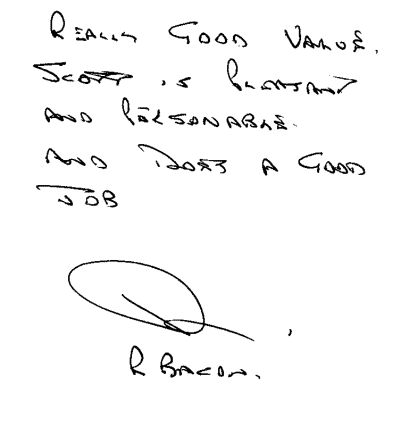 REALLY GOOD VALUE.
SCOTT IS PLEASANT
AND PERSONABLE.
AND DOES A GOOD
JOB
R BACON.